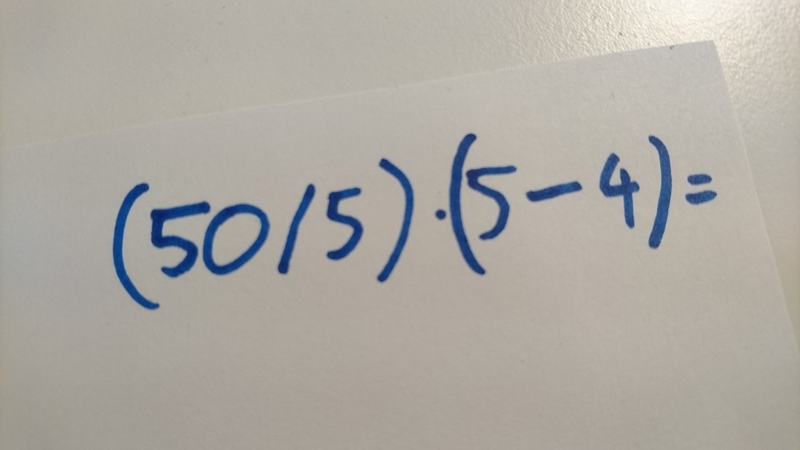 (50/5)·(5-4)=